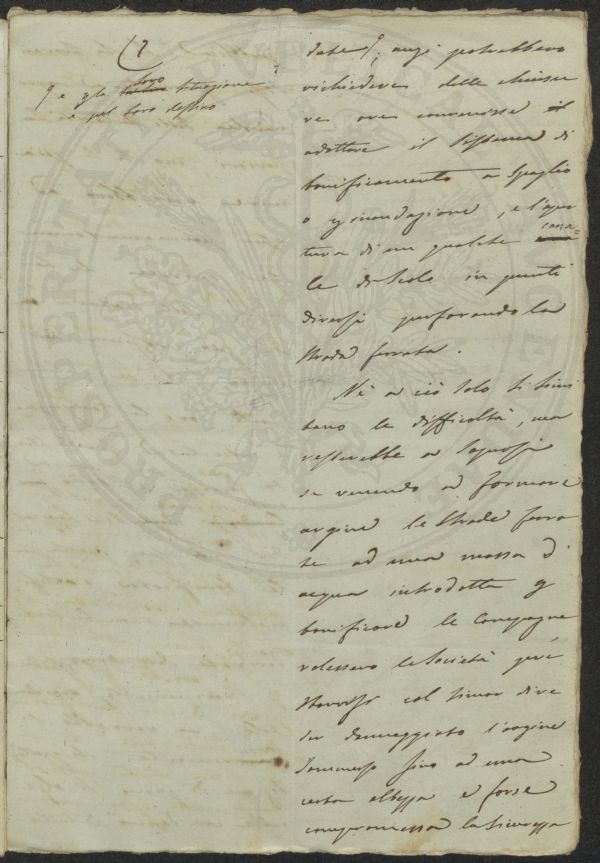 (7
e gle loro situazione
e pel loro destino
date, anzi potrebbero
richiedere delle chiusu
re ove convenisse il
adottare il sistema di
bonificamento a spaglio
o inondazione, e l'aper
tura di un qualche cana=
le di scolo in punti
diversi perforando la
strada ferrata.
Nè a ciò solo si limi
tano le difficoltà, ma
resterebbe a sapersi
se venendo a formare
argine le strade ferra
te ad una massa d'
acqua introdotta
bonificare le Campagne
volessero le Società pre
starvisi col timor di ve
der danneggiato l'argine
sommerso fino ad una
certa altezza e forse
compromessa la sicurezza
PROSPERITATI PUBLICAE